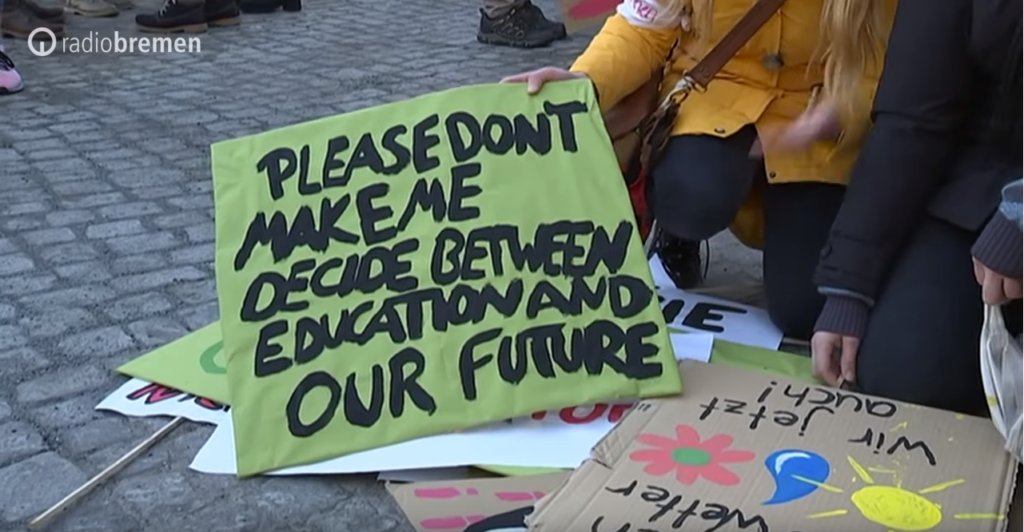 radiobremen
PLEASE DONT
MAKE ME
DECIDE BETWEEN
EDUCATION AND
OUR FUTURE
wir jetzt
auch!
Wetter